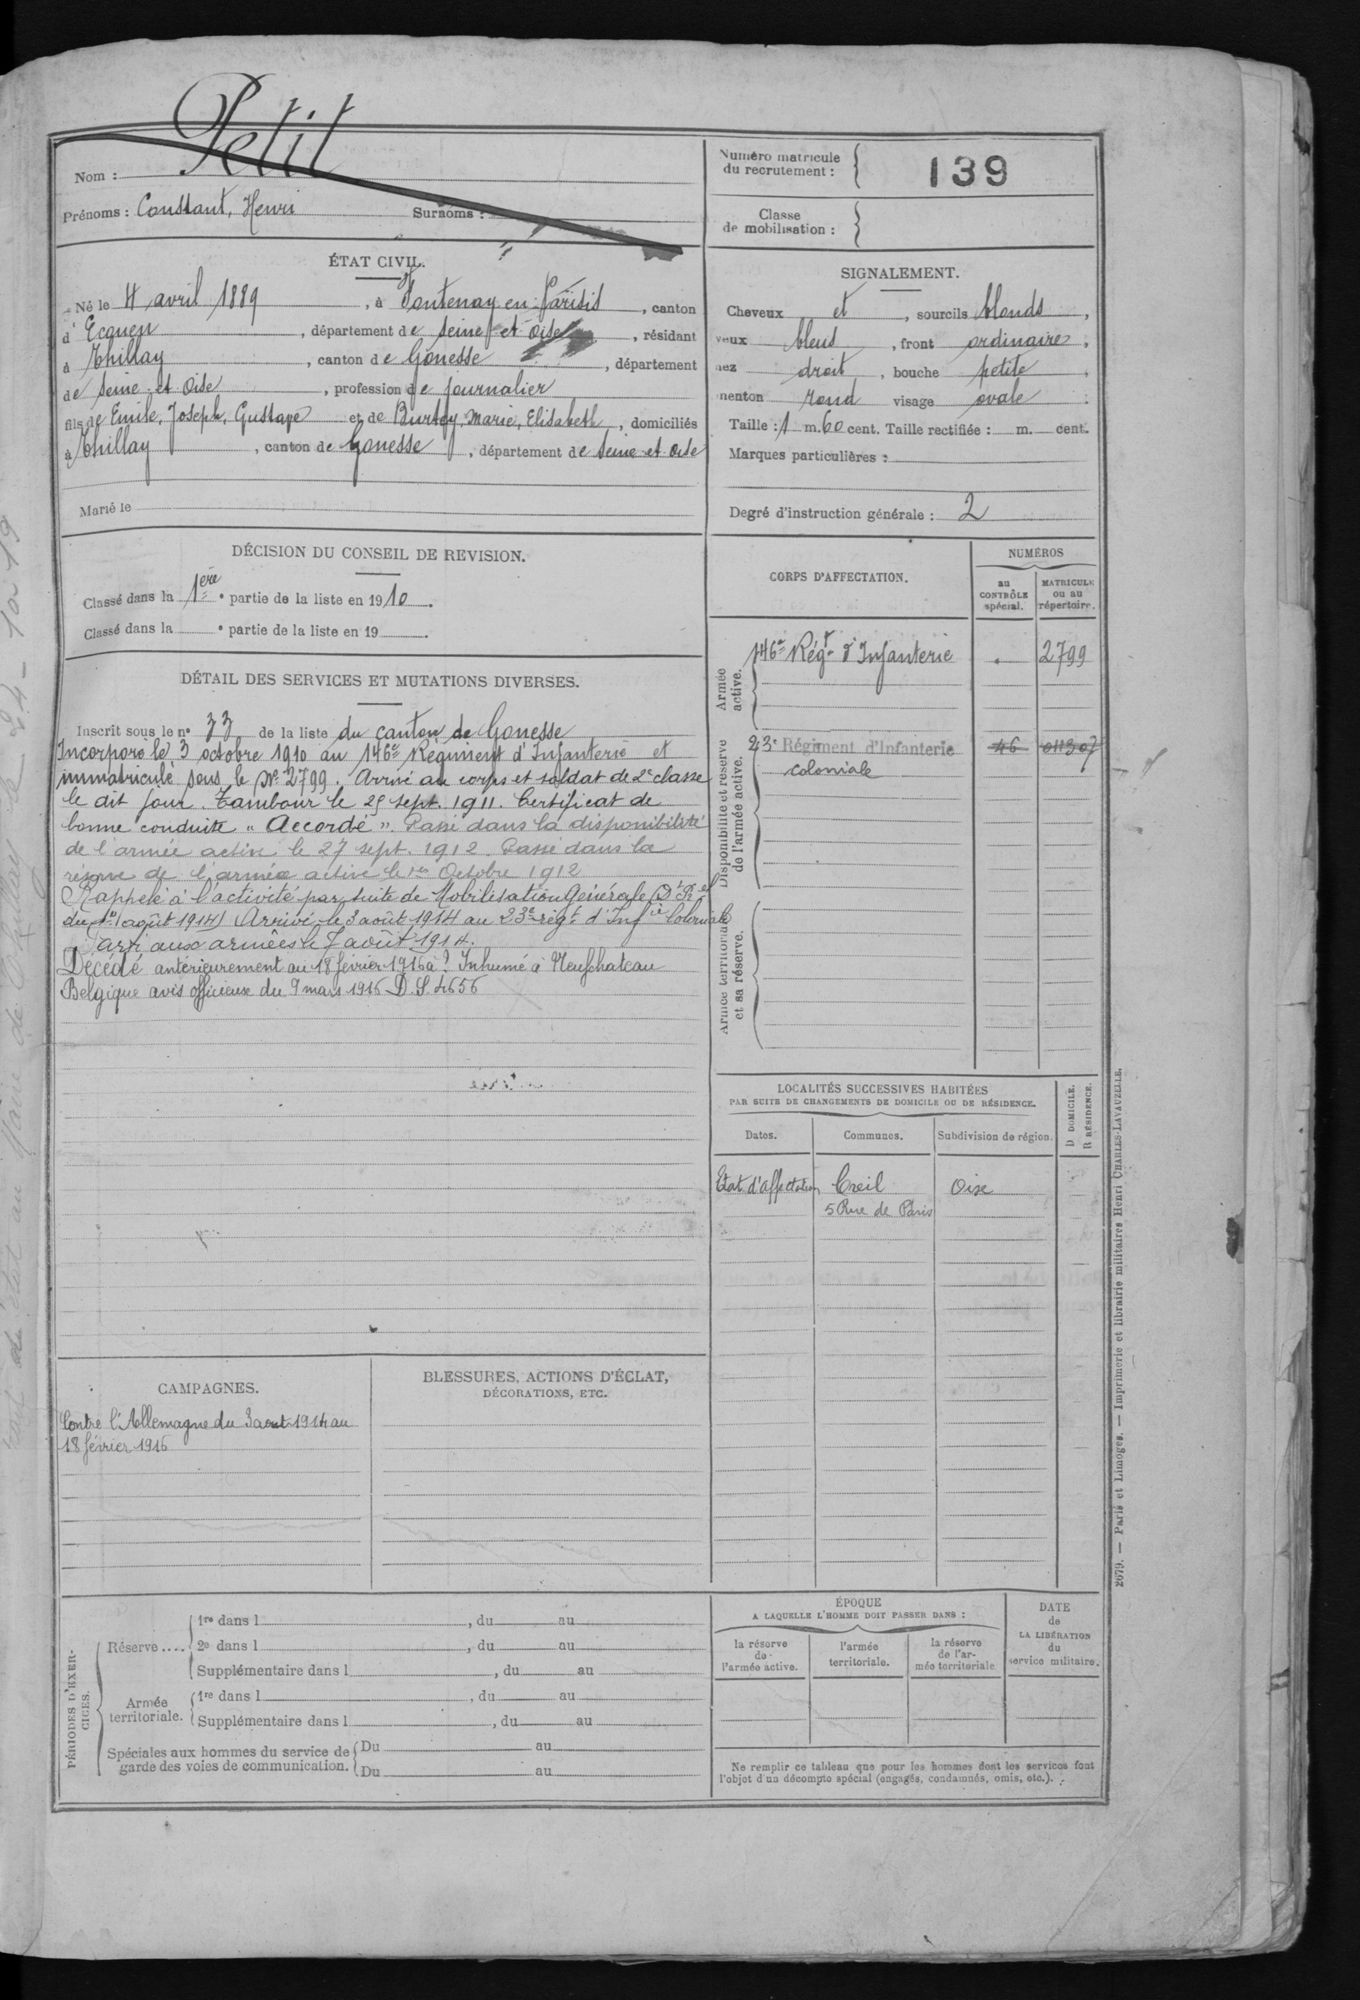 Petit
Nom :
Prénoms : Constant, Henri Surnoms :
Numéro matricule
du recrutement :
139
Classe
de mobilisation :
ÉTAT CIVIL.
Né le 4 avril 1889, à Fontenay en Parisis, canton
d'Ecouen, département de Seine et Oise, résidant
à Thillay, canton de Gonesse, département
de Seine et Oise, profession de journalier
fils de Emile, Joseph, Gustave et de Burtey, Marie, Elisabeth, domiciliés
à Thillay, canton de Gonesse, département de Seine et Oise
Marié le
SIGNALEMENT.
Cheveux et, sourcils blonds,
yeux bleus, front ordinaire,
nez droit, bouche petite,
menton rond visage ovale
Taille : 1 m. 60 cent. Taille rectifiée : m. cent.
Marques particulières :
Degré d'instruction générale : 2
DÉCISION DU CONSEIL DE REVISION.
Classé dans la 1ère partie de la liste en 1910.
Classé dans la e partie de la liste en 19
DÉTAIL DES SERVICES ET MUTATIONS DIVERSES.
Inscrit sous le n° 33 de la liste du canton de Gonesse
Incorporé le 3 octobre 1910 au 146e Régiment d'Infanterie et
immatriculé sous le No 2799. Arrivé au corps et soldat de 2e classe
le dit jour. Tambour le 25 sept. 1911. Certificat de
bonne conduite "Accordé". Passé dans la disponibilité
de l'armée active le 27 sept. 1912. Passé dans la
réserve de l'armée active le 1er Octobre 1912
Rappelé à l'activité par suite de Mobilisation Générale
du 1er août 1914) Arrivé le 3 août 1914 au 23e régt d'Infie Coloniale
Parti aux armées le 7 août 1914.
Décédé antérieurement au 18 février 1916 à ? Inhumé à Neufchateau
Belgique avis officieux du 9 mars 1916 D.S. 4656
CORPS D'AFFECTATION.
NUMÉROS
au
CONTRÔLE
spécial.
MATRICULE
ou au
répertoire.
Armée
active.
146e Régt d'Infanterie 2799
Disponibilité et réserve
de l'armée active.
23e Régiment d'Infanterie 46 011307
Coloniale
Armée territoriale
et sa réserve.
LOCALITÉS SUCCESSIVES HABITÉES
PAR SUITE DE CHANGEMENTS DE DOMICILE OU DE RÉSIDENCE.
D DOMICILE.
R RÉSIDENCE.
Dates. Communes. Subdivision de région.
Etat d'affectation Creil Oise
5 Rue de Paris
CAMPAGNES.
Contre l'Allemagne du 3 aout 1914 au
18 février 1916
BLESSURES, ACTIONS D'ÉCLAT,
DÉCORATIONS, ETC.
PÉRIODES D'EXER-
CICES.
Réserve ....
1re dans l, du au
2e dans l, du au
Supplémentaire dans l, du au
Armée
territoriale.
1re dans l, du au
Supplémentaire dans l, du au
Spéciales aux hommes du service de
garde des voies de communication.
Du au
Du au
ÉPOQUE
A LAQUELLE L'HOMME DOIT PASSER DANS :
la réserve
de
l'armée active.
l'armée
territoriale.
la réserve
de l'ar-
mée territoriale
DATE
de
LA LIBÉRATION
du
service militaire.
Ne remplir ce tableau que pour les hommes dont les services font
l'objet d'un décompte spécial (engagés, condamnés, omis, etc.).
2679. — Paris et Limoges. — Imprimerie et librairie militaires Henri CHARLES-LAVAUZELLE.